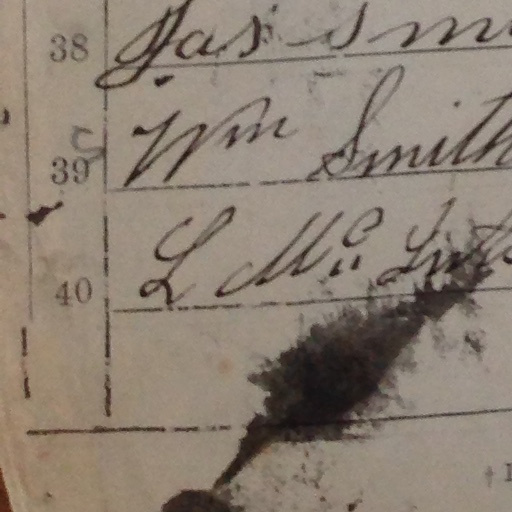 38 Jas Sm
39 Wm Smith
40 L Mc